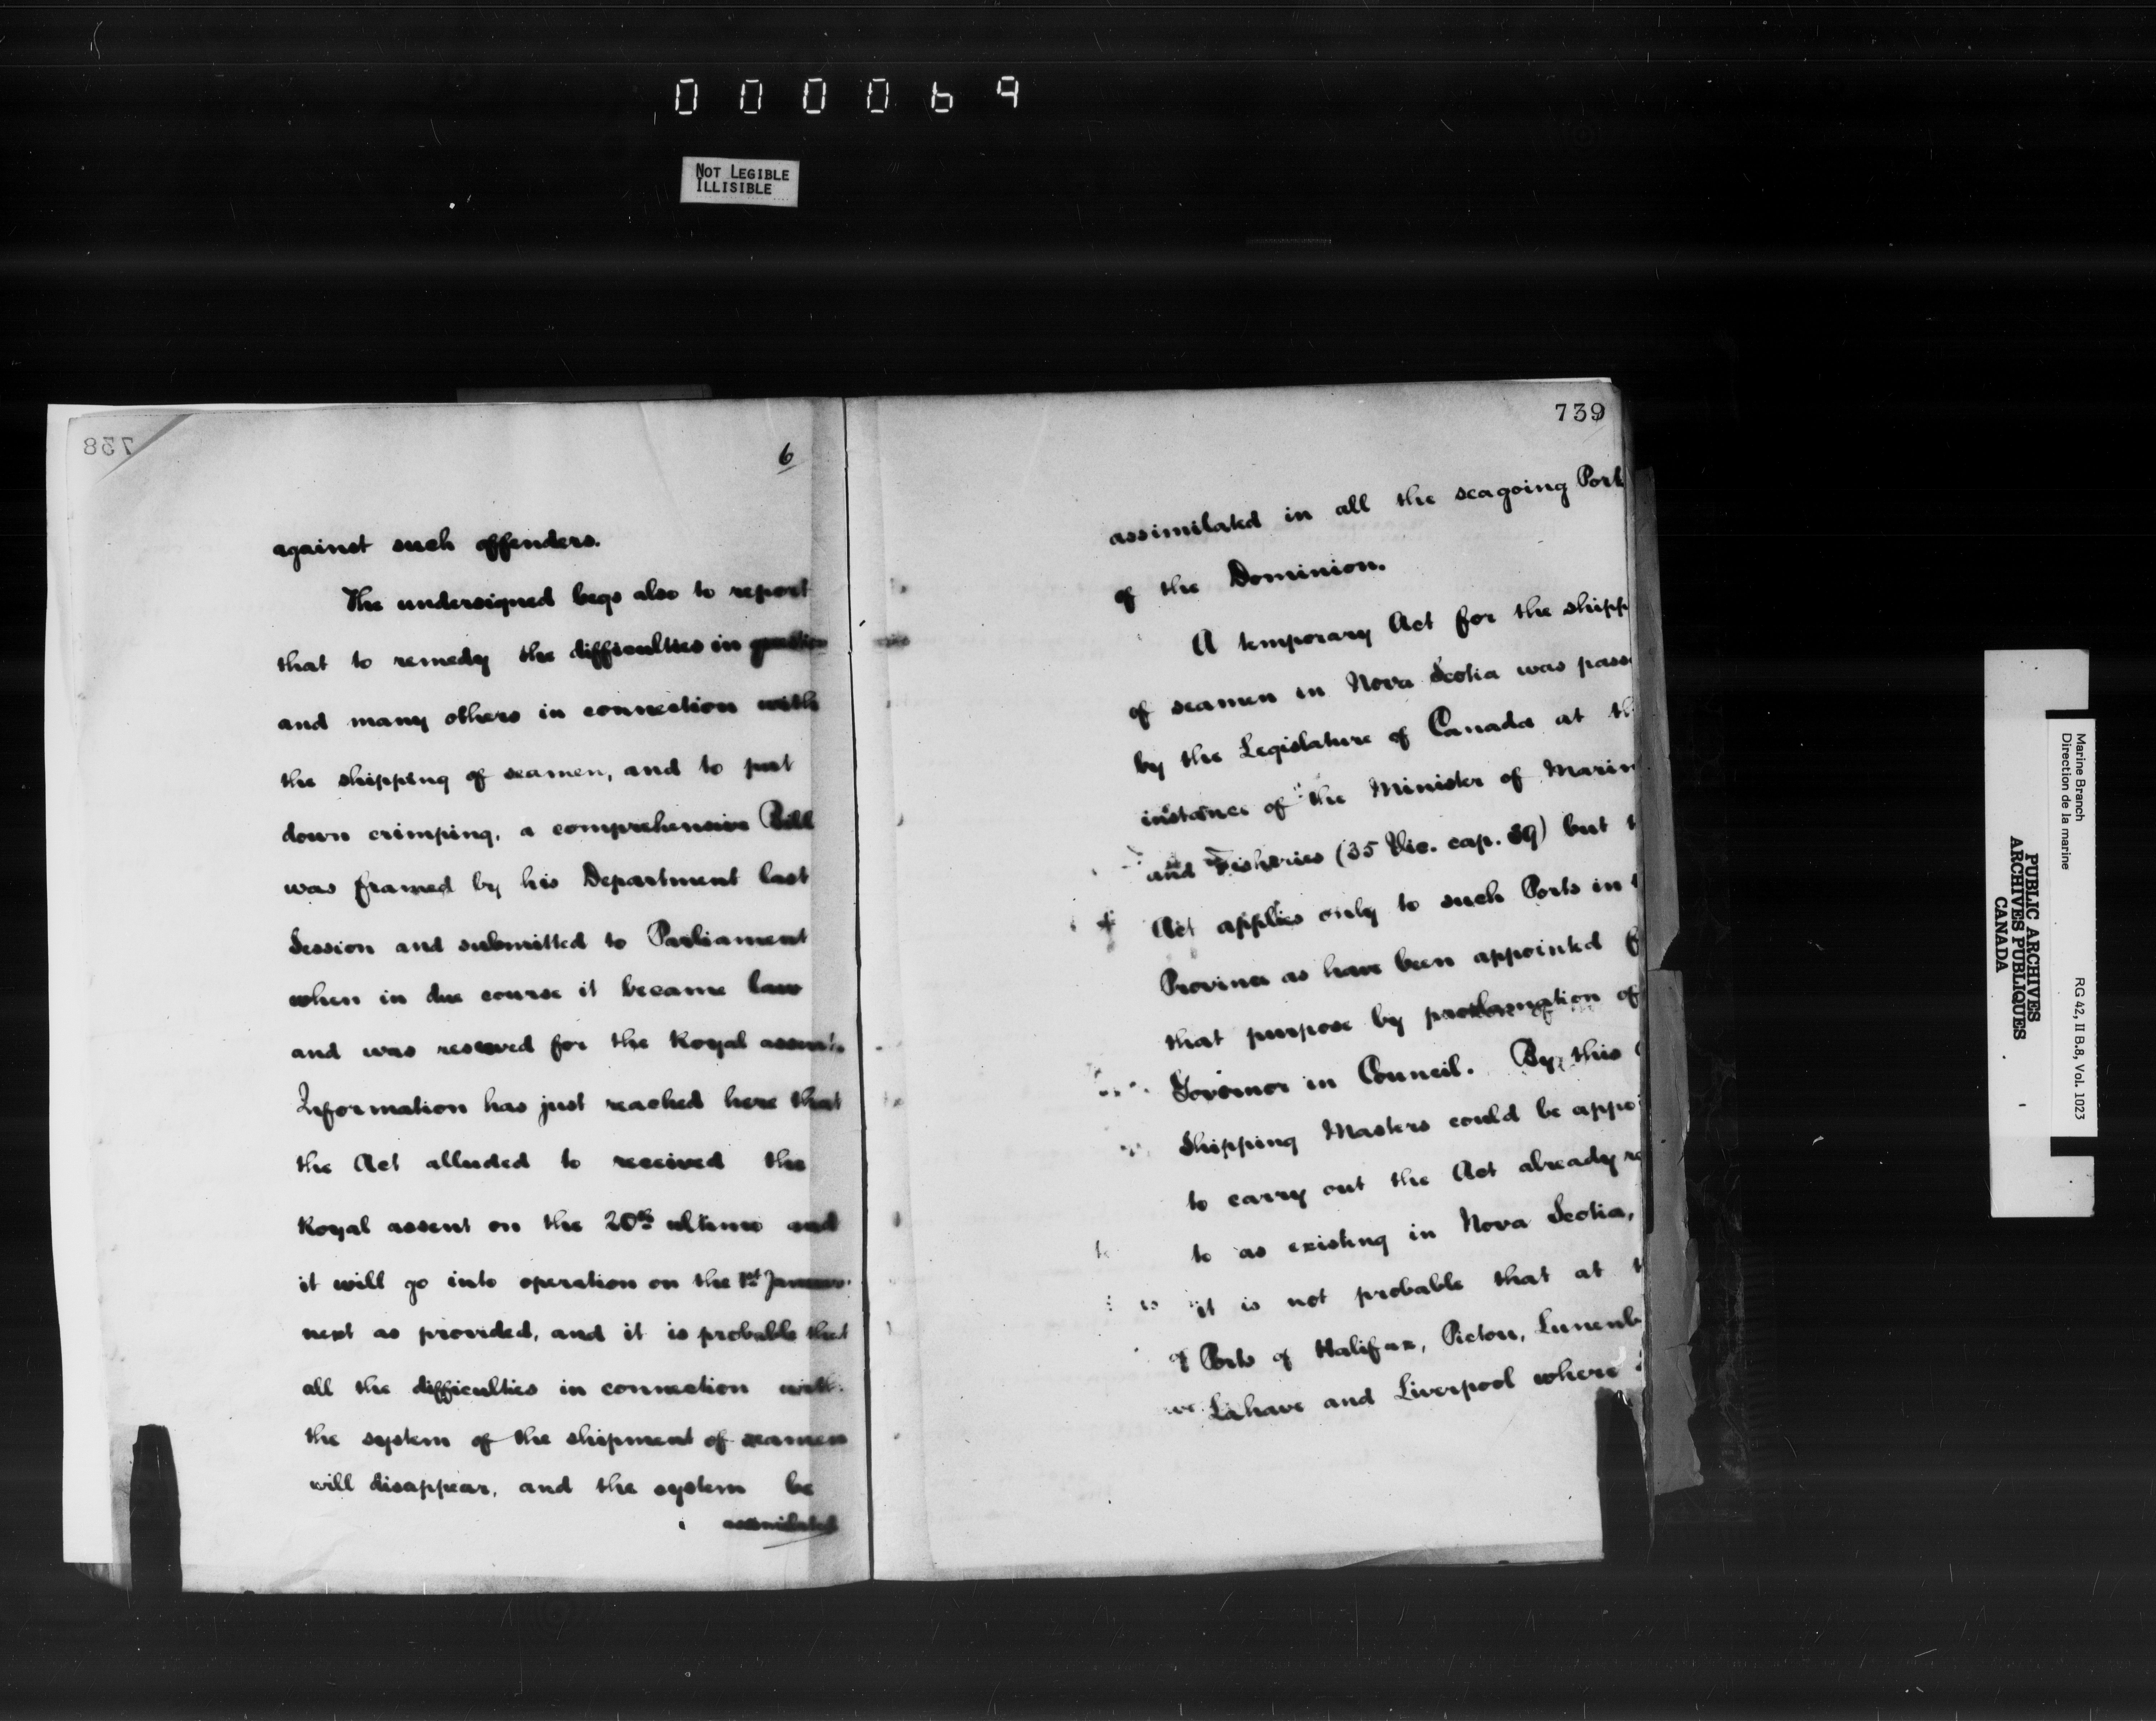 000069
NOT LEGIBLE
ILLISIBLE
738
6
against such offenders.
The undersigned begs also to report
that to remedy the difficulties in question
and many others in connection with
the shipping of seamen, and to put
down crimping, a comprehensive Bill
was framed by his Department last
Session and submitted to Parliament
when in due course it became law
and was reserved for the Royal assent.
Information has just reached here that
the Act alluded to received the
Royal assent on the 20th ultimo and
it will go into operation on the 1st January
next as provided, and it is probable that
all the difficulties in connection with
the system of the shipment of seamen
will disappear, and the system be
assimilated
739
assimilated in all the seagoing Port
of the Dominion.
A temporary Act for the shipp
of seamen in Nova Scotia was pass
by the Legislature of Canada at th
instance of the Minister of Marin
and Fisheries (35 Vic. cap. 39) but t
Act applies only to such Ports in t
Province as have been appointed f
that purpose by proclamation of
Governor in Council. By this
Shipping Masters could be appoi
to carry out the Act already re
to as existing in Nova Scotia,
it is not probable that at t
Ports of Halifax, Pictou, Lunenb
Lahave and Liverpool where
Marine Branch
Direction de la marine
RG 42, II B.8, Vol. 1023
PUBLIC ARCHIVES
ARCHIVES PUBLIQUES
CANADA